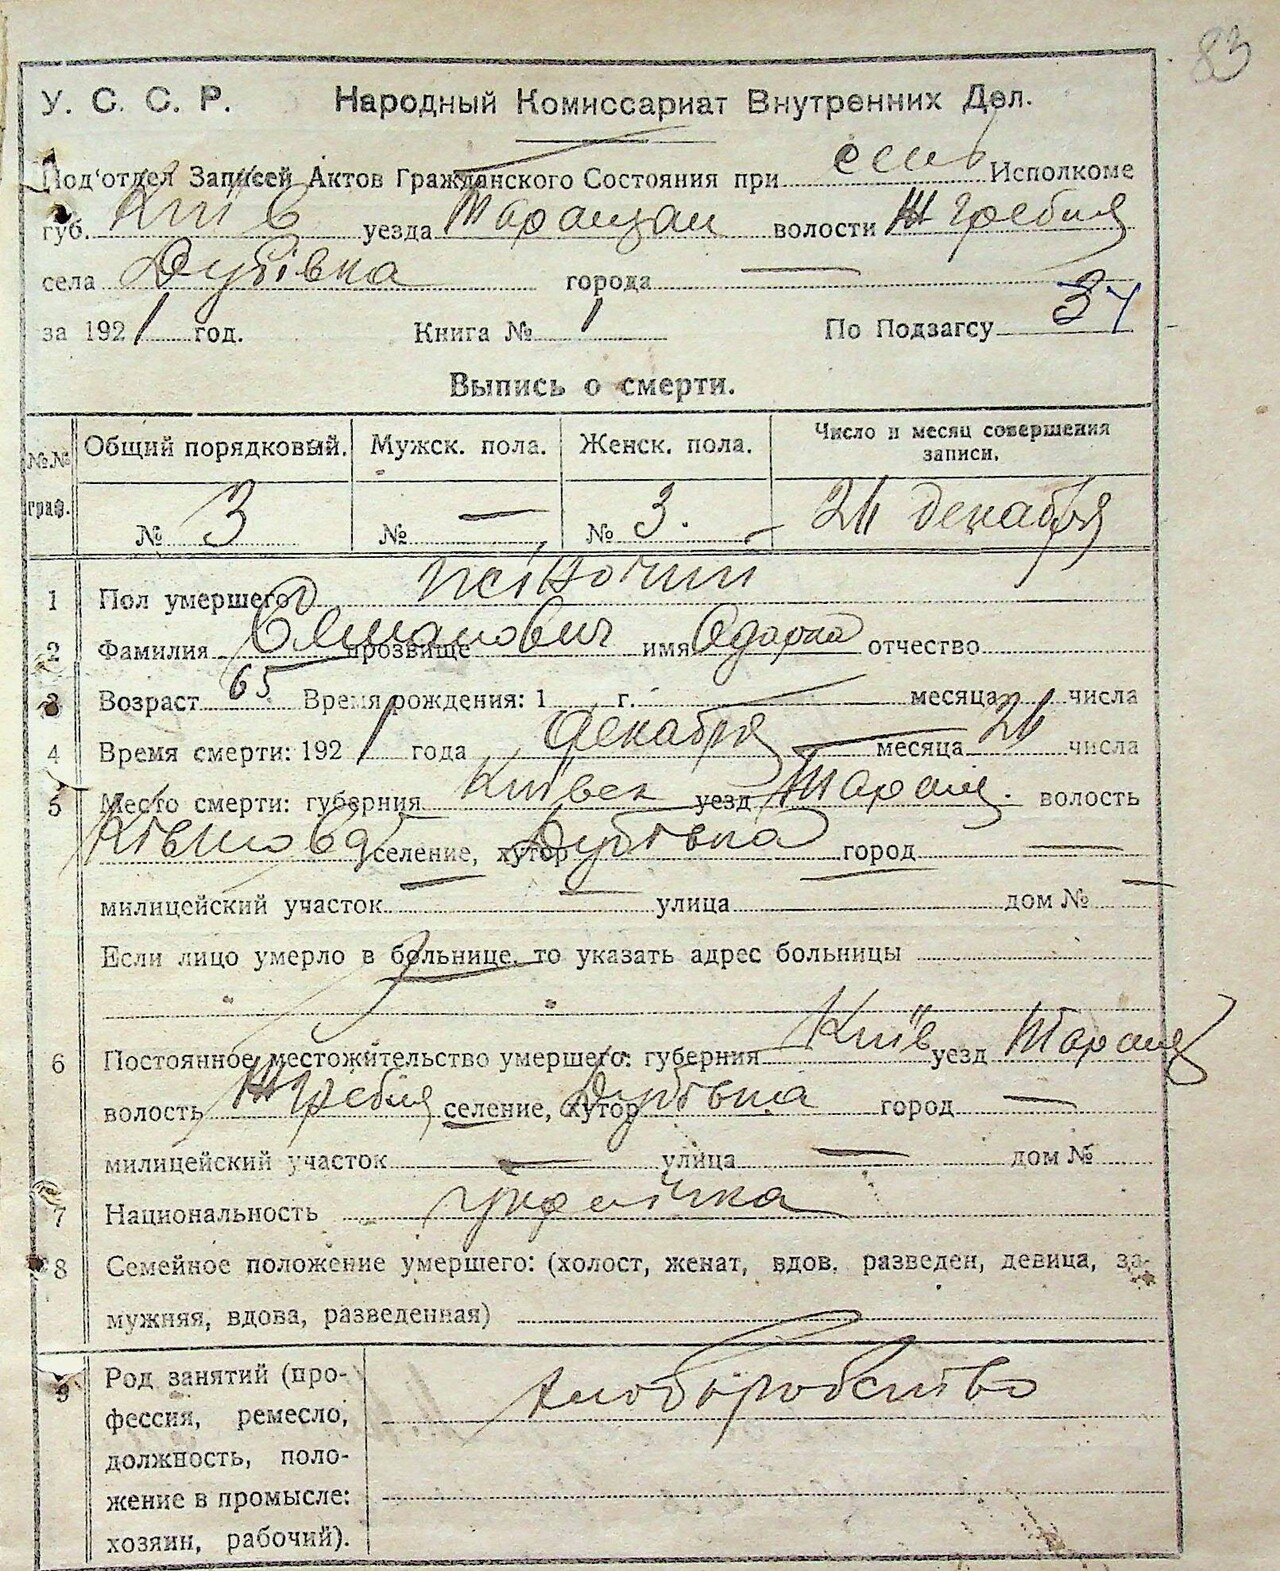 83
У. С. С. Р. Народный Комиссариат Внутренних Дел.
Под'отдел Записей Актов Гражданского Состояния при Исполкоме
губ. Київ уезда Таращан волости Жгребня
села Дубівка города —
за 1921 год. Книга № 1 По Подзагсу 34
Выпись о смерти.
№№ граф. Общий порядковый. Мужск. пола. Женск. пола. Число и месяц совершения записи.
№ 3 № — № 3. декабря
1 Пол умершего жіночий
2 Фамилия прозвище имя Одарка отчество
3 Возраст 65 Время рождения: 1 г. — месяца числа
4 Время смерти: 1921 года декабря месяца числа
5 Место смерти: губерния Київск уезд Таращ. волость
селение, хутор Дубівка город —
милицейский участок — улица — дом № —
Если лицо умерло в больнице, то указать адрес больницы
6 Постоянное местожительство умершего: губерния Київ уезд Таращ
волость Жгребня селение, хутор Дубівка город —
милицейский участок — улица — дом №
7 Национальность українка
8 Семейное положение умершего: (холост, женат, вдов, разведен, девица, за-
мужняя, вдова, разведенная)
9 Род занятий (про-
фессия, ремесло, хлоборобство
должность, поло-
жение в промысле:
хозяин, рабочий).